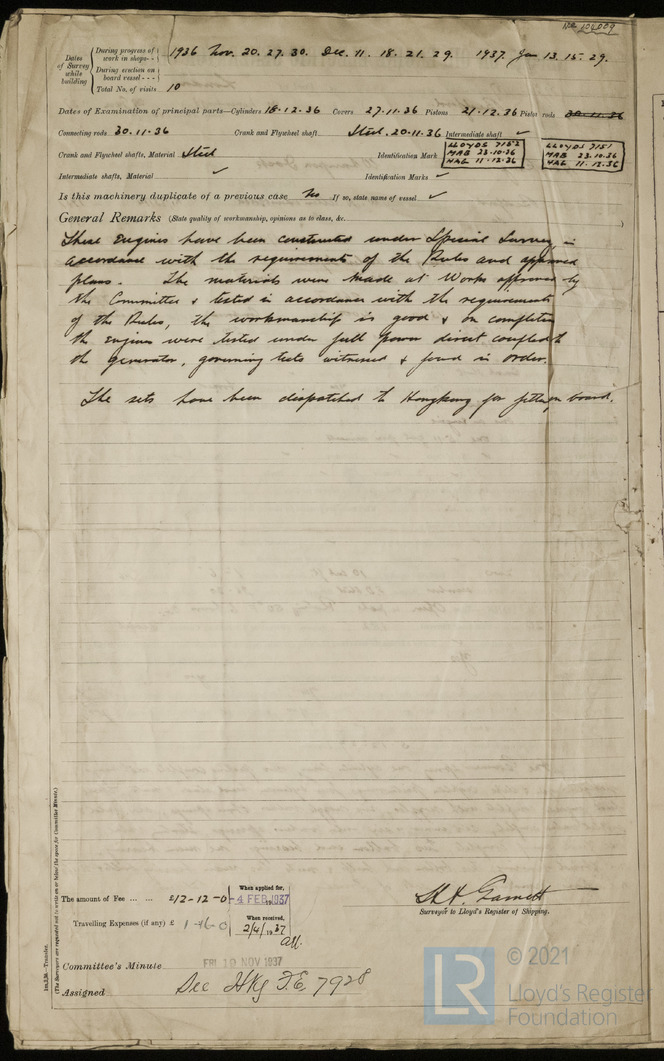 No 102009
Dates of Survey while building
During progress of work in shops - - 1936 Nov. 20. 27. 30. Dec. 11. 18. 21. 29. 1937. Jan 13. 15. 29.
During erection on board vessel - - -
Total No. of visits 10
Dates of Examination of principal parts—Cylinders 18.12.36 Covers 27.11.36 Pistons 21.12.36 Piston rods 30.11.36
Connecting rods 30.11.36 Crank and Flywheel shaft Steel. 20.11.36 Intermediate shaft ✓
Crank and Flywheel shafts, Material Steel Identification Mark
LLOYDS 7152
MAB 23.10.36
HAG 11.12.36
LLOYDS 7151
MAB 23.10.36
HAG 11.12.36
Intermediate shafts, Material ✓ Identification Marks ✓
Is this machinery duplicate of a previous case No If so, state name of vessel ✓
General Remarks (State quality of workmanship, opinions as to class, &c.
These Engines have been constructed under Special Survey in
accordance with the requirements of the Rules and approved
plans. The materials were made at Works approved by
the Committee & tested in accordance with the requirements
of the Rules, the workmanship is good & on completion
the engines were tested under full power direct coupled to
the generator, governing tests witnessed & found in order.
The sets have been dispatched to Hongkong for fitting on board.
The amount of Fee ... ... £12-12-0
When applied for,
4 FEB 1937
Travelling Expenses (if any) £
When received,
2/4/1937
Surveyor to Lloyd's Register of Shipping.
Committee's Minute FRI 19 NOV 1937
Assigned See Hkg F.E. 7928
1m.2,36.—Transfer.
(The Surveyors are requested not to write on or below the space for Committee Minute.)
LR
© 2021
Lloyd's Register
Foundation